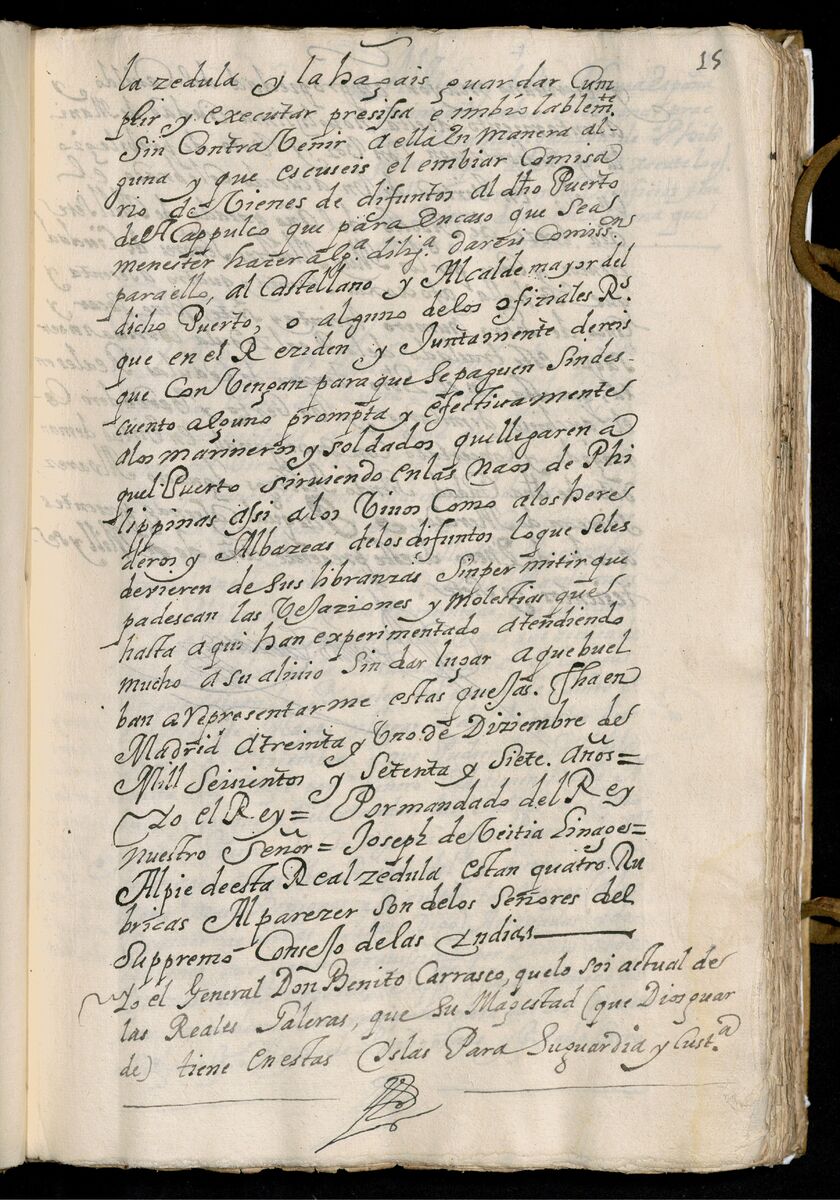 15
la zedula y la hagais guardar Cum
plir y executar presissa e imbiolablemte.
Sin Contra Venir a ella en manera al-
guna y que escuseis el embiar Comisa
rio de Vienes de difuntos al dho Puerto
de Acappulco que para en caso que sea
menester hacer alga. diliga. dareis Comisson.
para ello, al Castellano y Alcalde mayor del
dicho Puerto, o alguno de los ofiziales Rs.
que en el Reziden y Juntamente dereis
que Convengan para que se paguen sin des-
cuento alguno prompta y efectivamente
a los marineros y soldados que llegaren a
quel Puerto sirviendo en las Naos de Phi
lippinas assi a los Vivos Como a los here
deros y Albazeas de los difuntos lo que se les
devieren de sus libranzas sin permitir que
padescan las Vejaziones y molestias que
hasta aqui han experimentado atendiendo
mucho a su alivio sin dar lugar a que buel
ban a representarme estas quejas. Fha en
Madrid a treinta y Uno de Diziembre de
Mill Seisientos y Setenta y Siete. Años=
Yo el Rey= Por mandado del Rey
nuestro Señor= Joseph de Veitia Linages=
Al pie de esta Real zedula estan quatro Ru
bricas Al parezer son de los Señores del
Suppremo Consejo de las Indias
Yo el General Don Benito Carrasco, que lo soi actual de
las Reales Galeras, que Su Magestad (que Dios guar
de) tiene en estas Islas Para Su guardia y Custa.